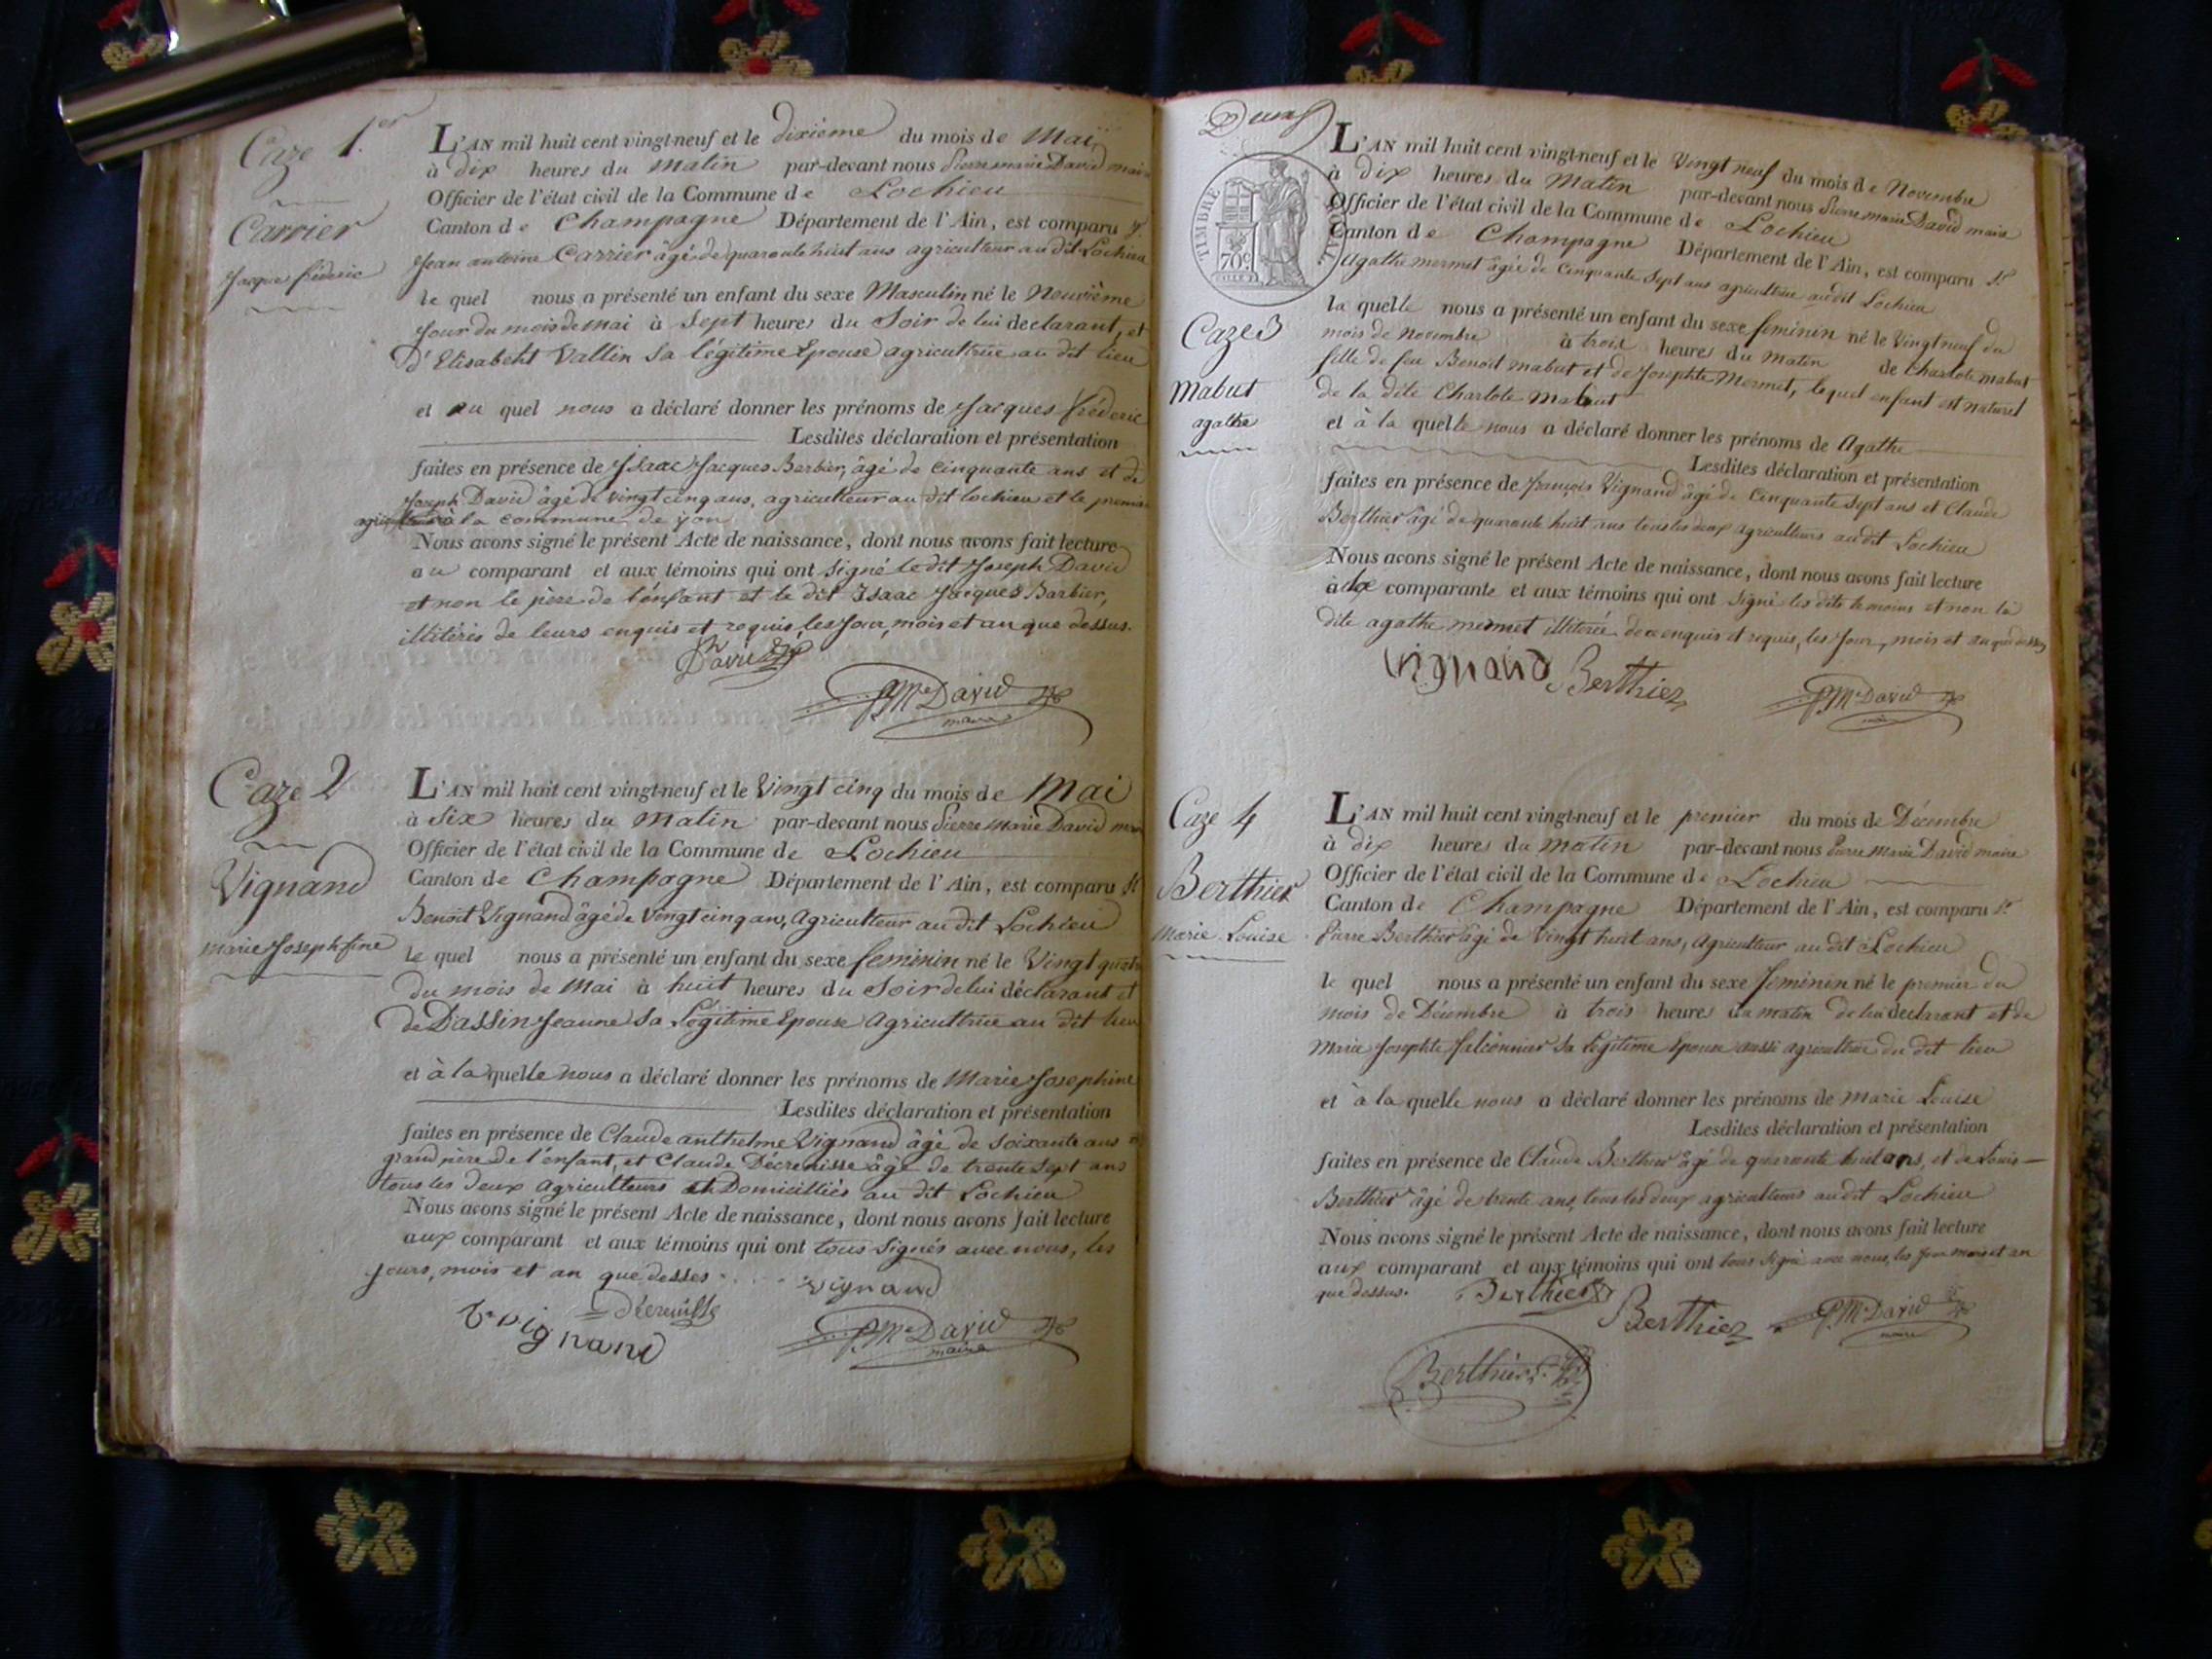 Caze 1.er
Carrier
Jacques fréderic
L'AN mil huit cent vingt-neuf et le dixième du mois de Mai,
à dix heures du Matin par-devant nous Pierre marie David maire
Officier de l'état civil de la Commune de Lochieu
Canton de Champagne Département de l'Ain, est comparu Sr
Jean antoine Carrier âgé de quarante huit ans agriculteur au dit Lochieu
le quel nous a présenté un enfant du sexe Masculin né le Neuvième
Jour du mois de mai à Sept heures du Soir de lui declarant, et
D'Elisabeht Vallin Sa légitime Epouse agricultrice au dit lieu
et au quel nous a déclaré donner les prénoms de Jacques fréderic
Lesdites déclaration et présentation
faites en présence de Isaac Jacques Barbier, âgé de Cinquante ans et de
Joseph David âgé de vingt cinq ans, agriculteur au dit lochieu et le premier
à la commune de yon
Nous avons signé le présent Acte de naissance, dont nous avons fait lecture
au comparant et aux témoins qui ont signé le dit Joseph David
et non le père de l'enfant et le dit Isaac Jacques Barbier,
illitérés de leurs enquis et requis, les Jour, mois et an que dessus.
David
P.Me David
maire
Caze 2
Vignand
marie Josephfine
L'AN mil huit cent vingt-neuf et le Vingt cinq du mois de Mai
à Six heures du Matin par-devant nous Pierre Marie David maire
Officier de l'état civil de la Commune de Lochieu
Canton de Champagne Département de l'Ain, est comparu Sr
Benoit Vignand âgé de Vingt cinq ans, Agriculteur au dit Lochieu
le quel nous a présenté un enfant du sexe feminin né le Vingt quatre
du mois de Mai à huit heures du Soir de lui déclarant et
de Dassin Jeanne Sa Légitime Epouse Agricultrice au dit lieu
et à la quelle nous a déclaré donner les prénoms de Marie Josephine
Lesdites déclaration et présentation
faites en présence de Claude anthelme Vignand âgé de Soixante ans
grand père de l'enfant, et Claude Décrenisse âgé de trente Sept ans
tous les deux Agriculteurs et Domicilliés au dit Lochieu
Nous avons signé le présent Acte de naissance, dont nous avons fait lecture
aux comparant et aux témoins qui ont tous Signés avec nous, les
jours, mois et an que desses
vignand
Décrenisse
vignand
P.Me David
maire
TIMBRE ROYAL
70c
L'AN mil huit cent vingt-neuf et le Vingt neuf du mois de Novembre
à dix heures du Matin par-devant nous Pierre marie David maire
Officier de l'état civil de la Commune de Lochieu
Canton de Champagne Département de l'Ain, est comparu Sr
Agathe mermet âgée de Cinquante Sept ans agricultrice au dit Lochieu
Caze 3
Mabut
agathe
la quelle nous a présenté un enfant du sexe feminin né le Vingt neuf du
mois de Novembre à trois heures du Matin de Charlote mabut
fille de feu Benoit mabut et de Josephte Mermet, lequel enfant est naturel
de la dite Charlote Mabut
et à la quelle nous a déclaré donner les prénoms de Agathe
Lesdites déclaration et présentation
faites en présence de françois Vignand âgé de Cinquante Sept ans et Claude
Berthier âgé de quarante huit ans tous les deux agriculteurs au dit Lochieu
Nous avons signé le présent Acte de naissance, dont nous avons fait lecture
à la comparante et aux témoins qui ont Signé les dits temoins et non la
dite agathe mermet illiterée de ce enquis et requis, les Jour, mois et an que dessus
vignand Berthier
P.Me David
maire
Caze 4
Berthier
Marie Louise
L'AN mil huit cent vingt-neuf et le premier du mois de Décembre
à dix heures du matin par-devant nous Pierre Marie David maire
Officier de l'état civil de la Commune de Lochieu
Canton de Champagne Département de l'Ain, est comparu Sr
Pierre Berthier âgé de Vingt huit ans, Agriculteur au dit Lochieu
le quel nous a présenté un enfant du sexe feminin né le premier du
mois de Décembre à trois heures du matin de lui declarant et de
Marie Josephte falconnier Sa Légitime Epouse aussi agricultrice du dit lieu
et à la quelle nous a déclaré donner les prénoms de Marie Louise
Lesdites déclaration et présentation
faites en présence de Claude Berthier âgé de quarante huit ans, et de Louis
Berthier âgé de trente ans, tous les deux agriculteurs au dit Lochieu
Nous avons signé le présent Acte de naissance, dont nous avons fait lecture
aux comparant et aux témoins qui ont tous Signé avec nous, les Jour mois et an
que dessus.
Berthier
Berthier
P.Me David
maire
Berthier